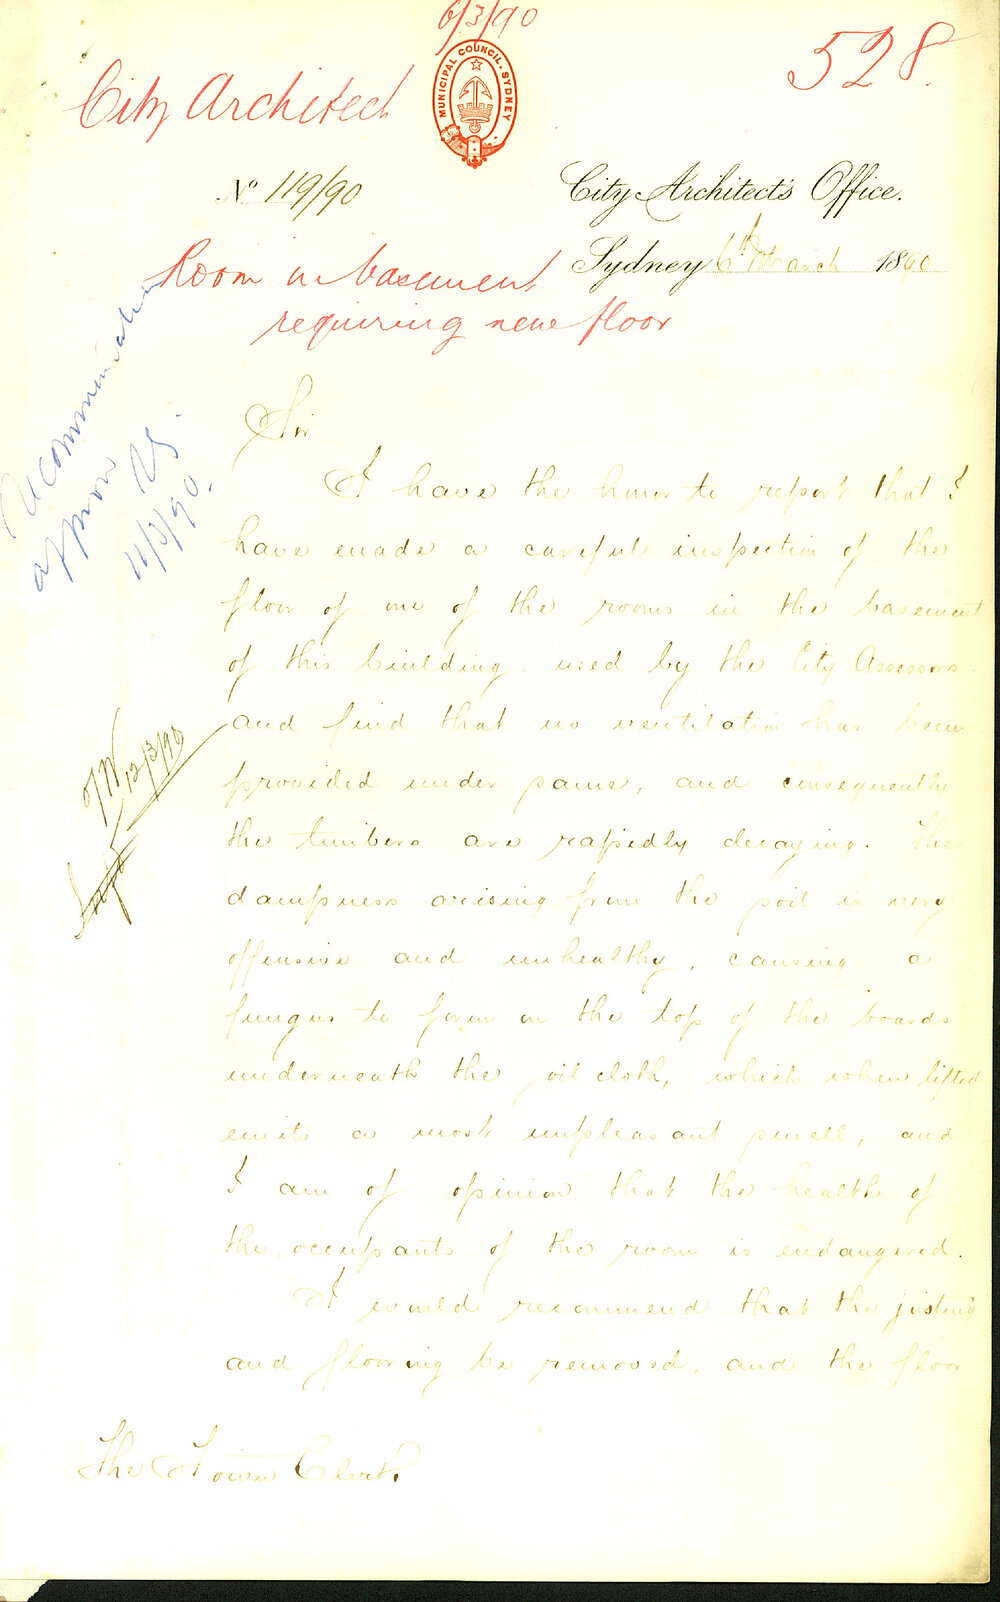 6/3/90
528.
City Architect
MUNICIPAL COUNCIL. SYDNEY
No 119/90
City Architect's Office.
Sydney 6th March 1890
Room in basement
requiring new floor
Recommendation
approved
11/3/90.
Sir
I have the honor to report that I
have made a careful inspection of the
floor of one of the rooms in the basement
of this building, used by the City Assessors
and find that no ventilation has been
provided under same, and consequently
the timbers are rapidly decaying. The
dampness arising from the soil is very
offensive and unhealthy, causing a
fungus to form on the top of the boards
underneath the oil cloth, which when lifted
emits a most unpleasant smell, and
I am of opinion that the health of
the occupants of the room is endangered.
I would recommend that the joisting
and flooring be removed, and the floor
12/3/90
The Town Clerk.